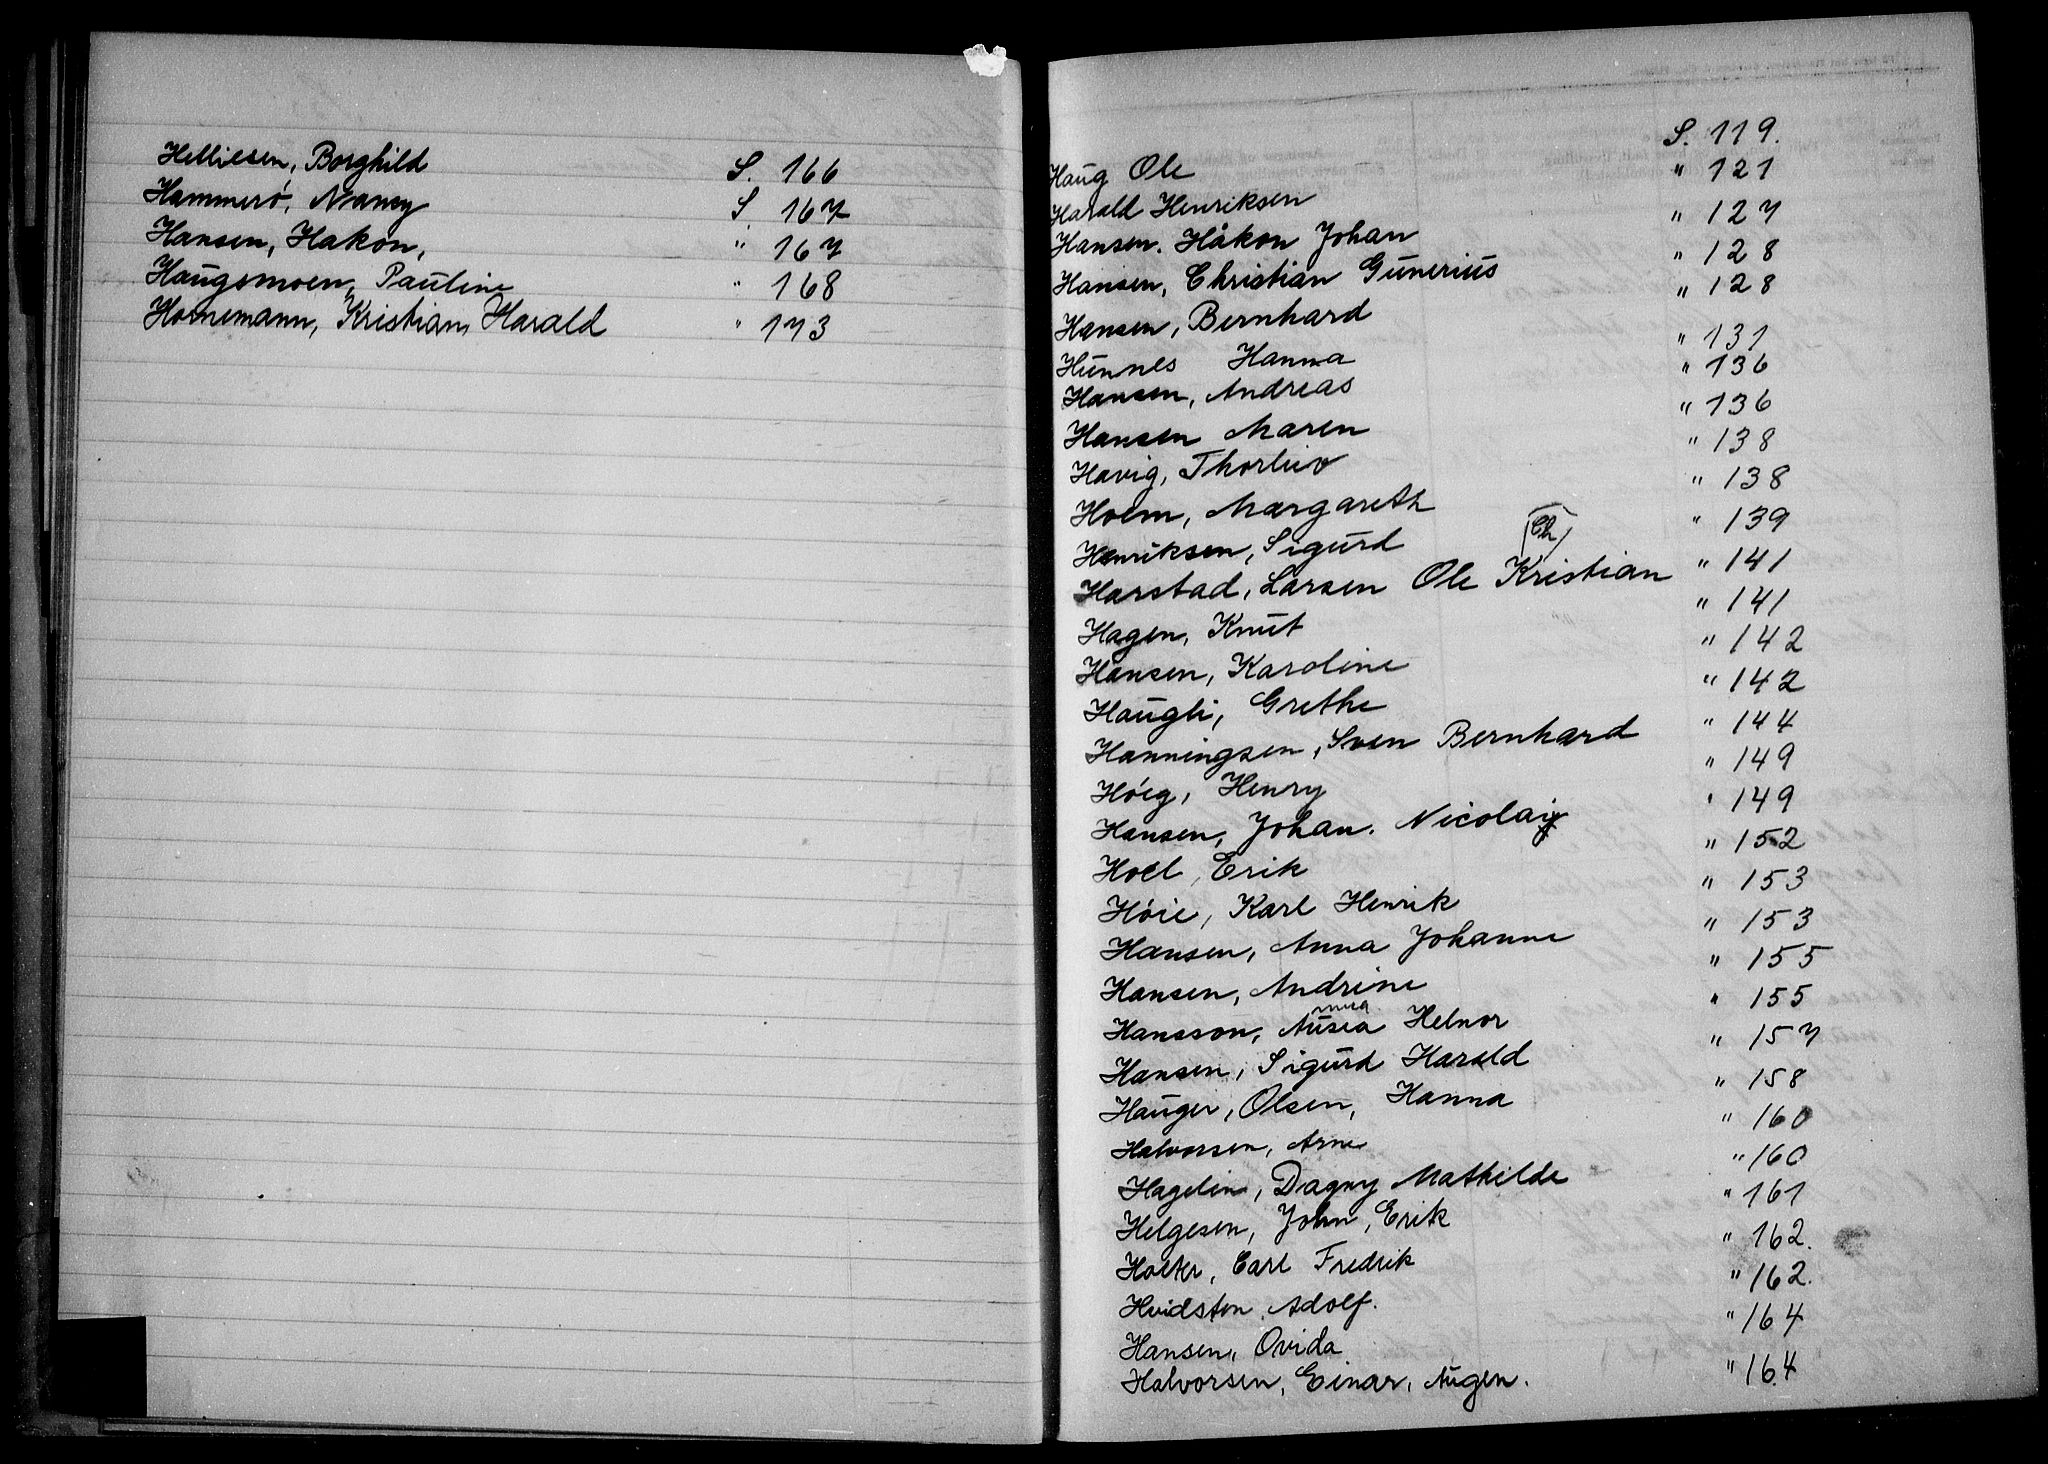 Helliesen, Borghild S. 166
Hammerø, Nancy S 167
Hansen, Hakon, " 167
Haugsmoen, Pauline " 168
Hornemann, Kristian, Harald " 173
Haug Ole S. 119.
Harald Henriksen " 121
Hansen. Håkon Johan " 127
Hansen, Christian Gunerius " 128
Hansen, Bernhard " 128
Hunnes Hanna " 131
Hansen, Andreas " 136
Hansen Maren " 136
Havig, Thorleiv " 138
Hoem, Margareth " 138
Henriksen, Sigurd " 139
(Ch)
Harstad, Larsen Ole Kristian " 141
Hagen, Knut " 141
Hansen, Karoline " 142
Haugli, Grethe " 142
Hanningsen, Sven Bernhard " 144
Høeg, Henry " 149
Hansen, Johan. Nicolai " 149
Hoel, Erik " 152
Høie, Karl Henrik " 153
Hansen, Anna Johanne " 153
Hansen, Andrine " 155
Hansson, Helnor " 155
Hansen, Sigurd Harald " 157
Hauger, Olsen, Hanna " 158
Halvorsen, Arne " 160
Hagelin, Dagny Mathilde " 160
Helgesen, John, Erik " 161
Holter, Carl Fredrik " 162.
Hvidsten, Adolf. " 162.
Hansen, Ovida " 164
Halvorsen, Einar, Augen. " 164